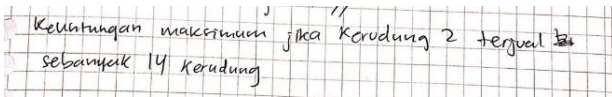 Keuntungan maksimum jika Kerudung 2 terjual
sebanyak 14 Kerudung